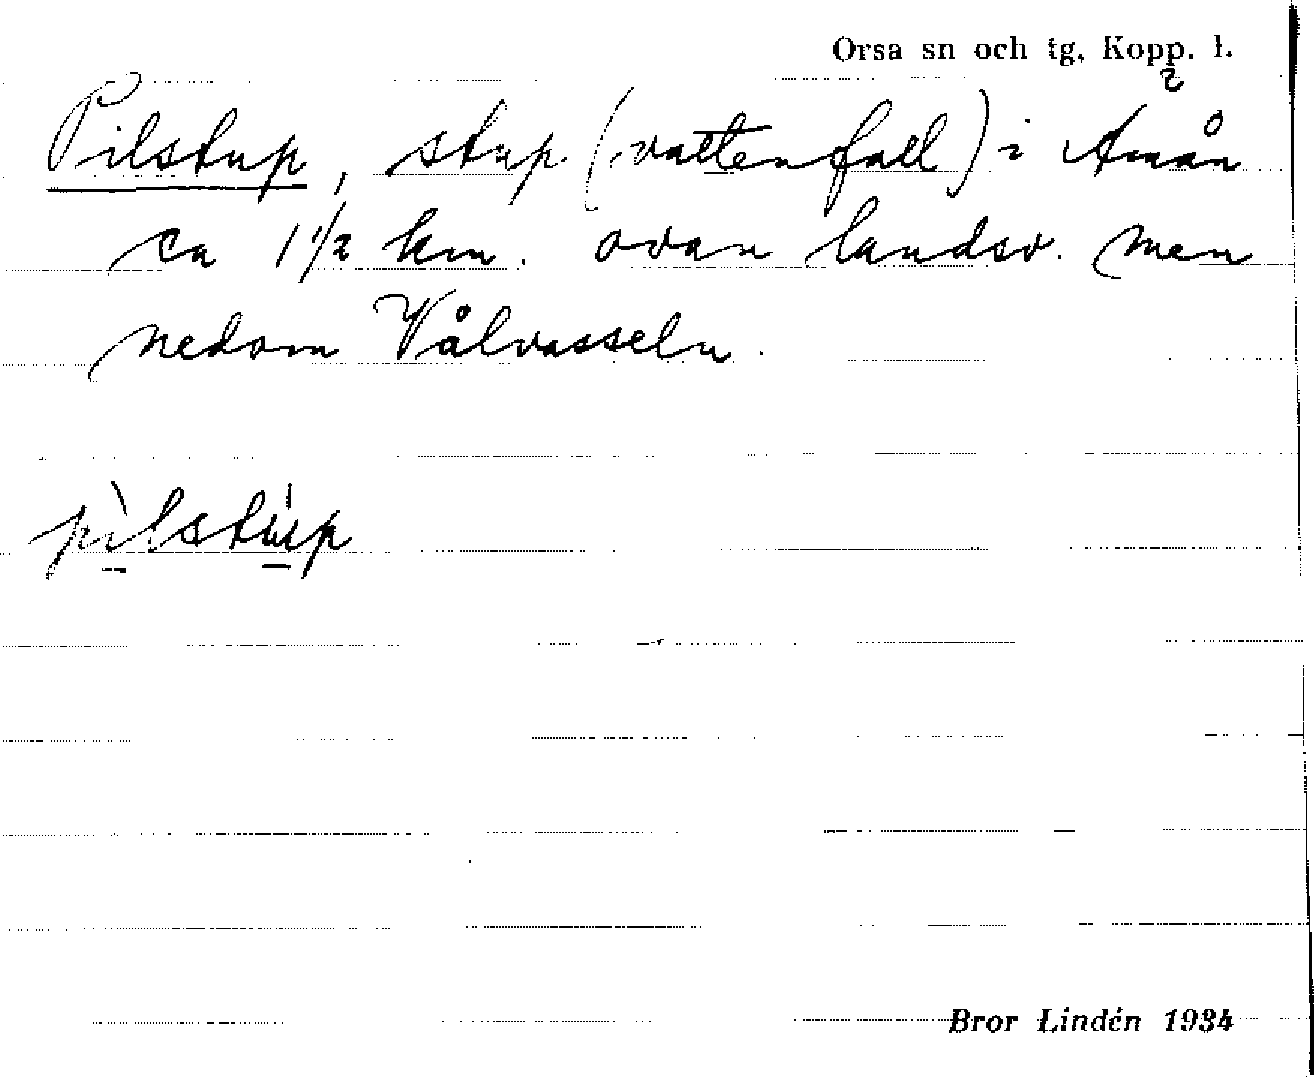 Orsa sn och tg. Kopp. l.
2
Pilstup, stup (vattenfall) i Ämån
ca 1 1/2 km. ovan landsv. men
nedom Vålvasseln.
pìlstúp
Bror Lindén 1934